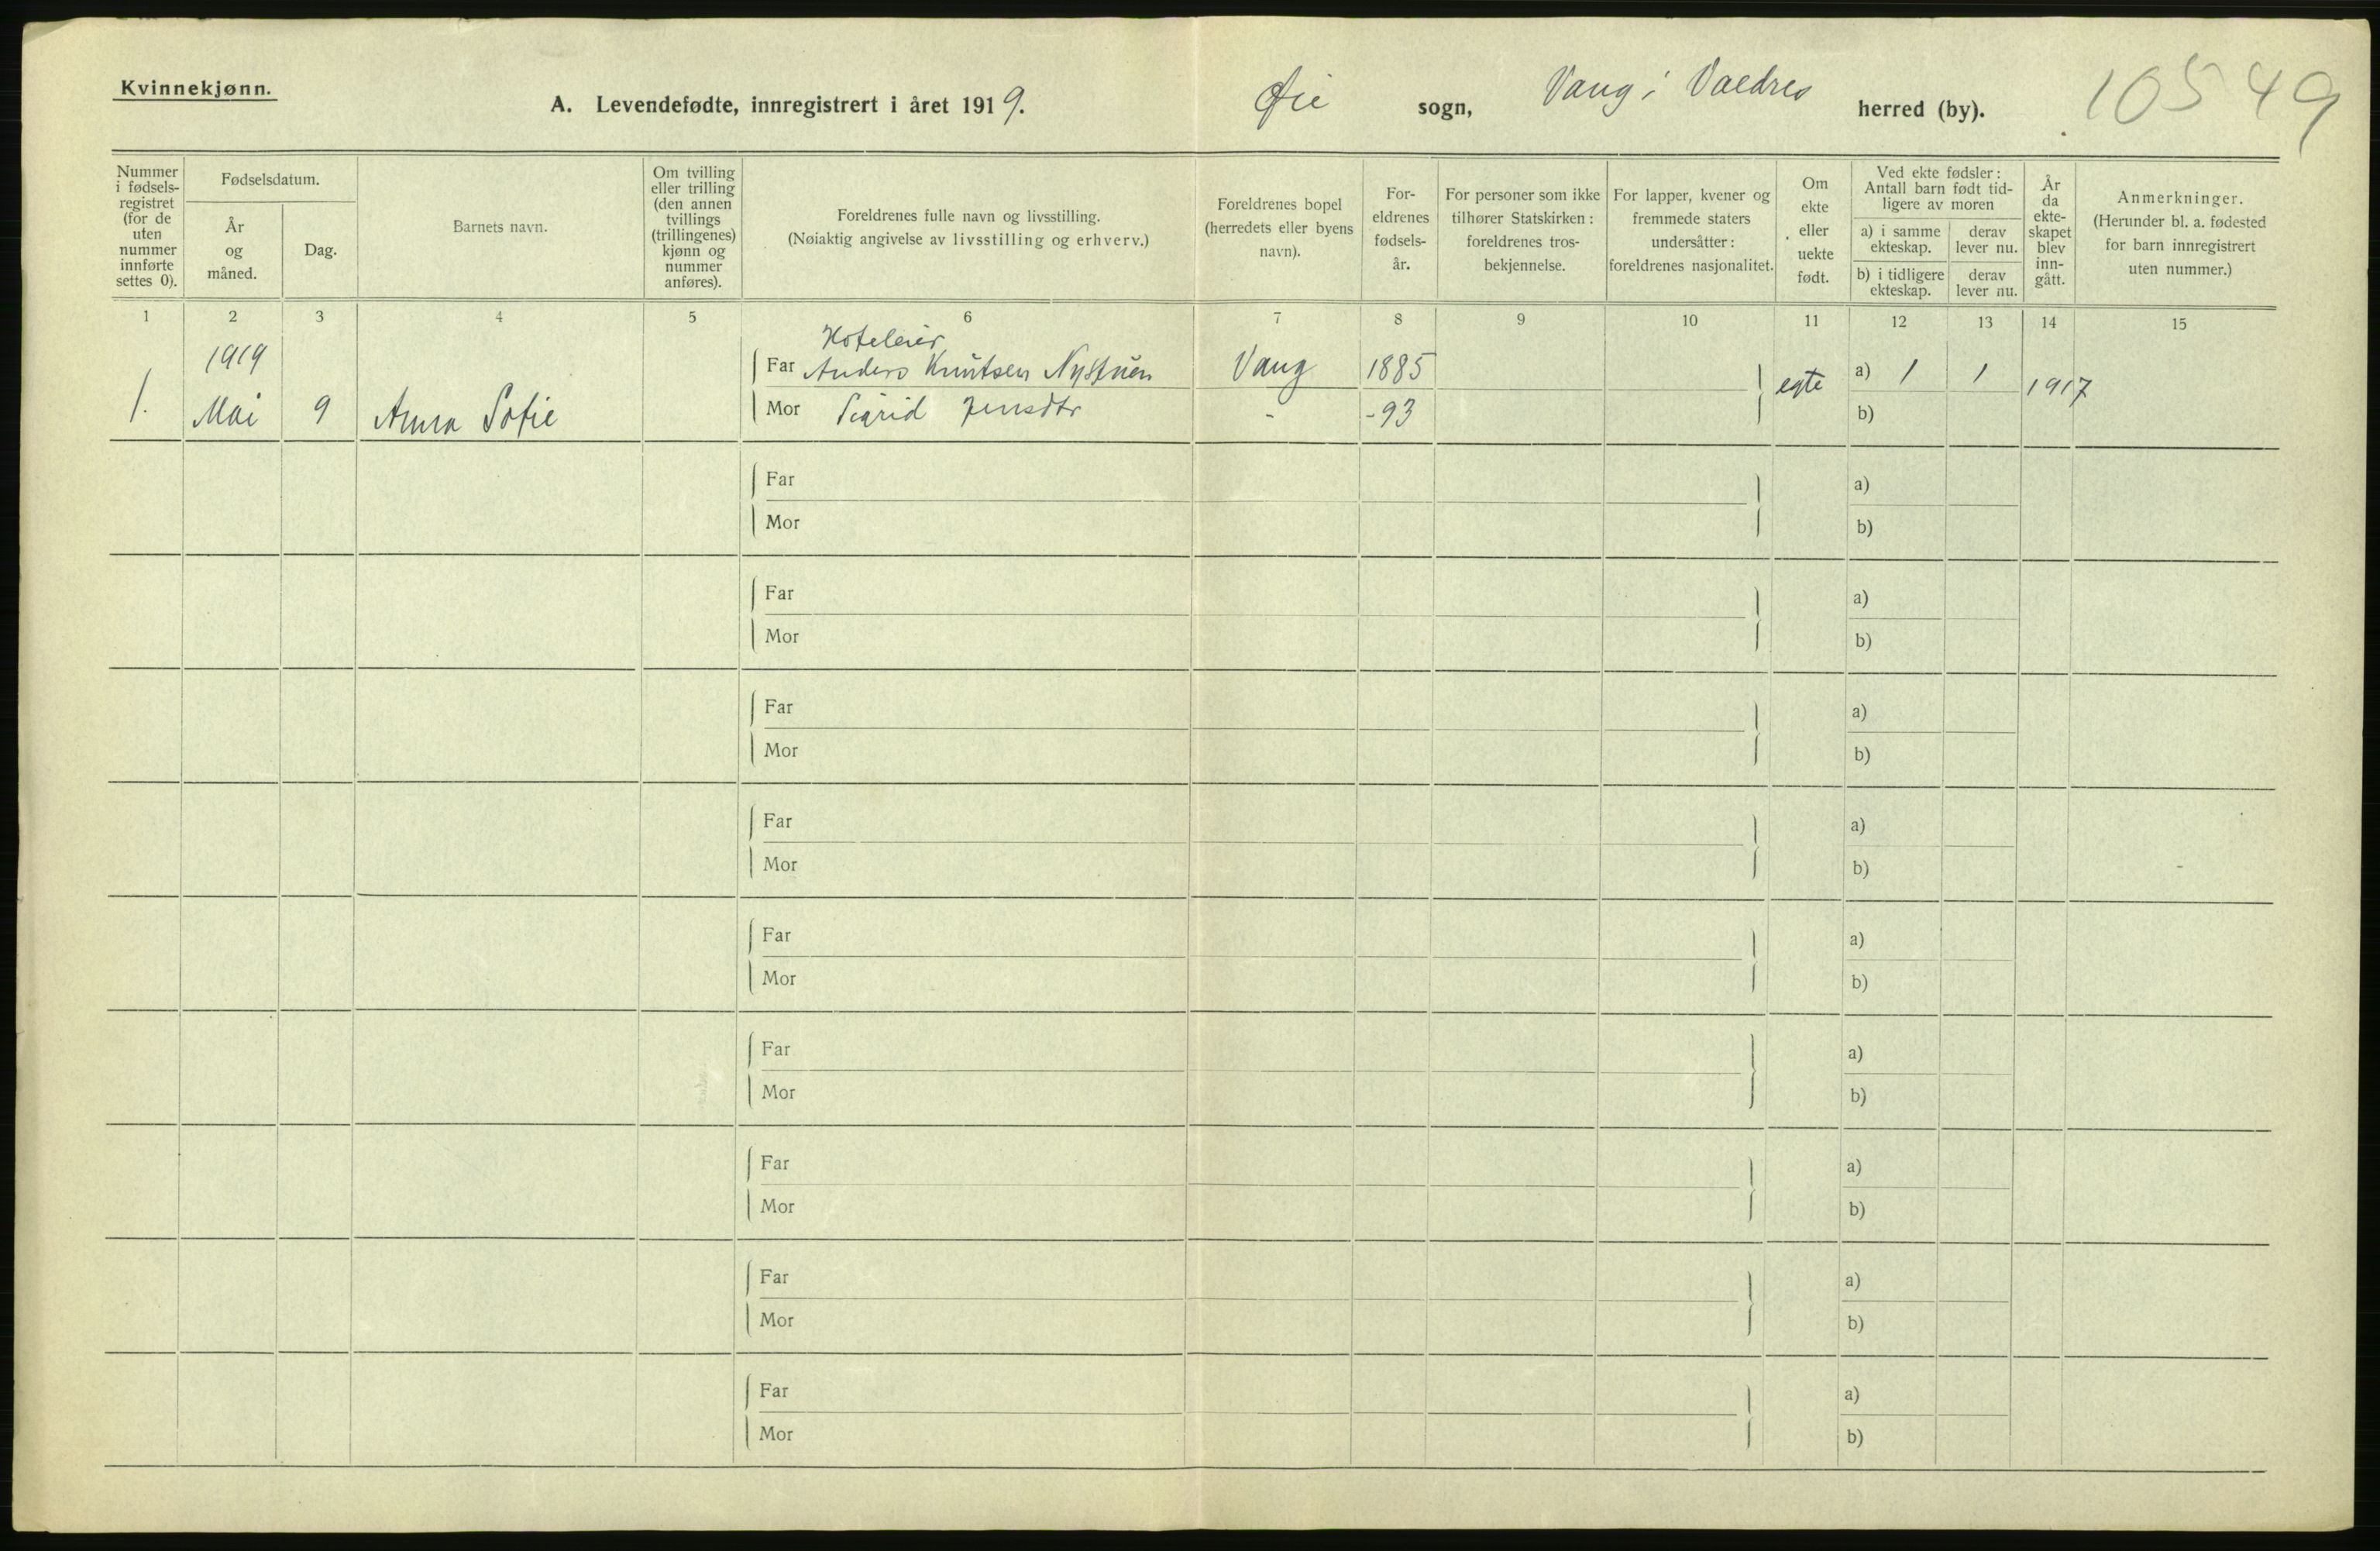 Kvinnekjønn.
A. Levendefødte, innregistrert i året 1919. Øie sogn, Vang i Valdres herred (by). 10549
Nummer i fødsels-registret (for de uten nummer innførte settes 0).
Fødselsdatum.
År og måned.
Dag.
Barnets navn.
Om tvilling eller trilling (den annen tvillings (trillingenes) kjønn og nummer anføres).
Foreldrenes fulle navn og livsstilling.
(Nøiaktig angivelse av livsstilling og erhverv.)
Foreldrenes bopel (herredets eller byens navn).
For-eldrenes fødsels-år.
For personer som ikke tilhører Statskirken: foreldrenes tros-bekjennelse.
For lapper, kvener og fremmede staters undersåtter: foreldrenes nasjonalitet.
Om ekte eller uekte født.
Ved ekte fødsler: Antall barn født tid-ligere av moren
a) i samme ekteskap.
derav lever nu.
b) i tidligere ekteskap.
derav lever nu.
År da ekte-skapet blev inn-gått.
Anmerkninger.
(Herunder bl. a. fødested for barn innregistrert uten nummer.)
1 2 3 4 5 6 7 8 9 10 11 12 13 14 15
1919 Hoteleier
Far Anders Knutsen Nystuen Vang 1885 egte a) 1 1 1917
1. Mai 9 Anna Sofie Mor Sigrid Jensdtr - -93 b)
Far a)
Mor b)
Far a)
Mor b)
Far a)
Mor b)
Far a)
Mor b)
Far a)
Mor b)
Far a)
Mor b)
Far a)
Mor b)
Far a)
Mor b)
Far a)
Mor b)